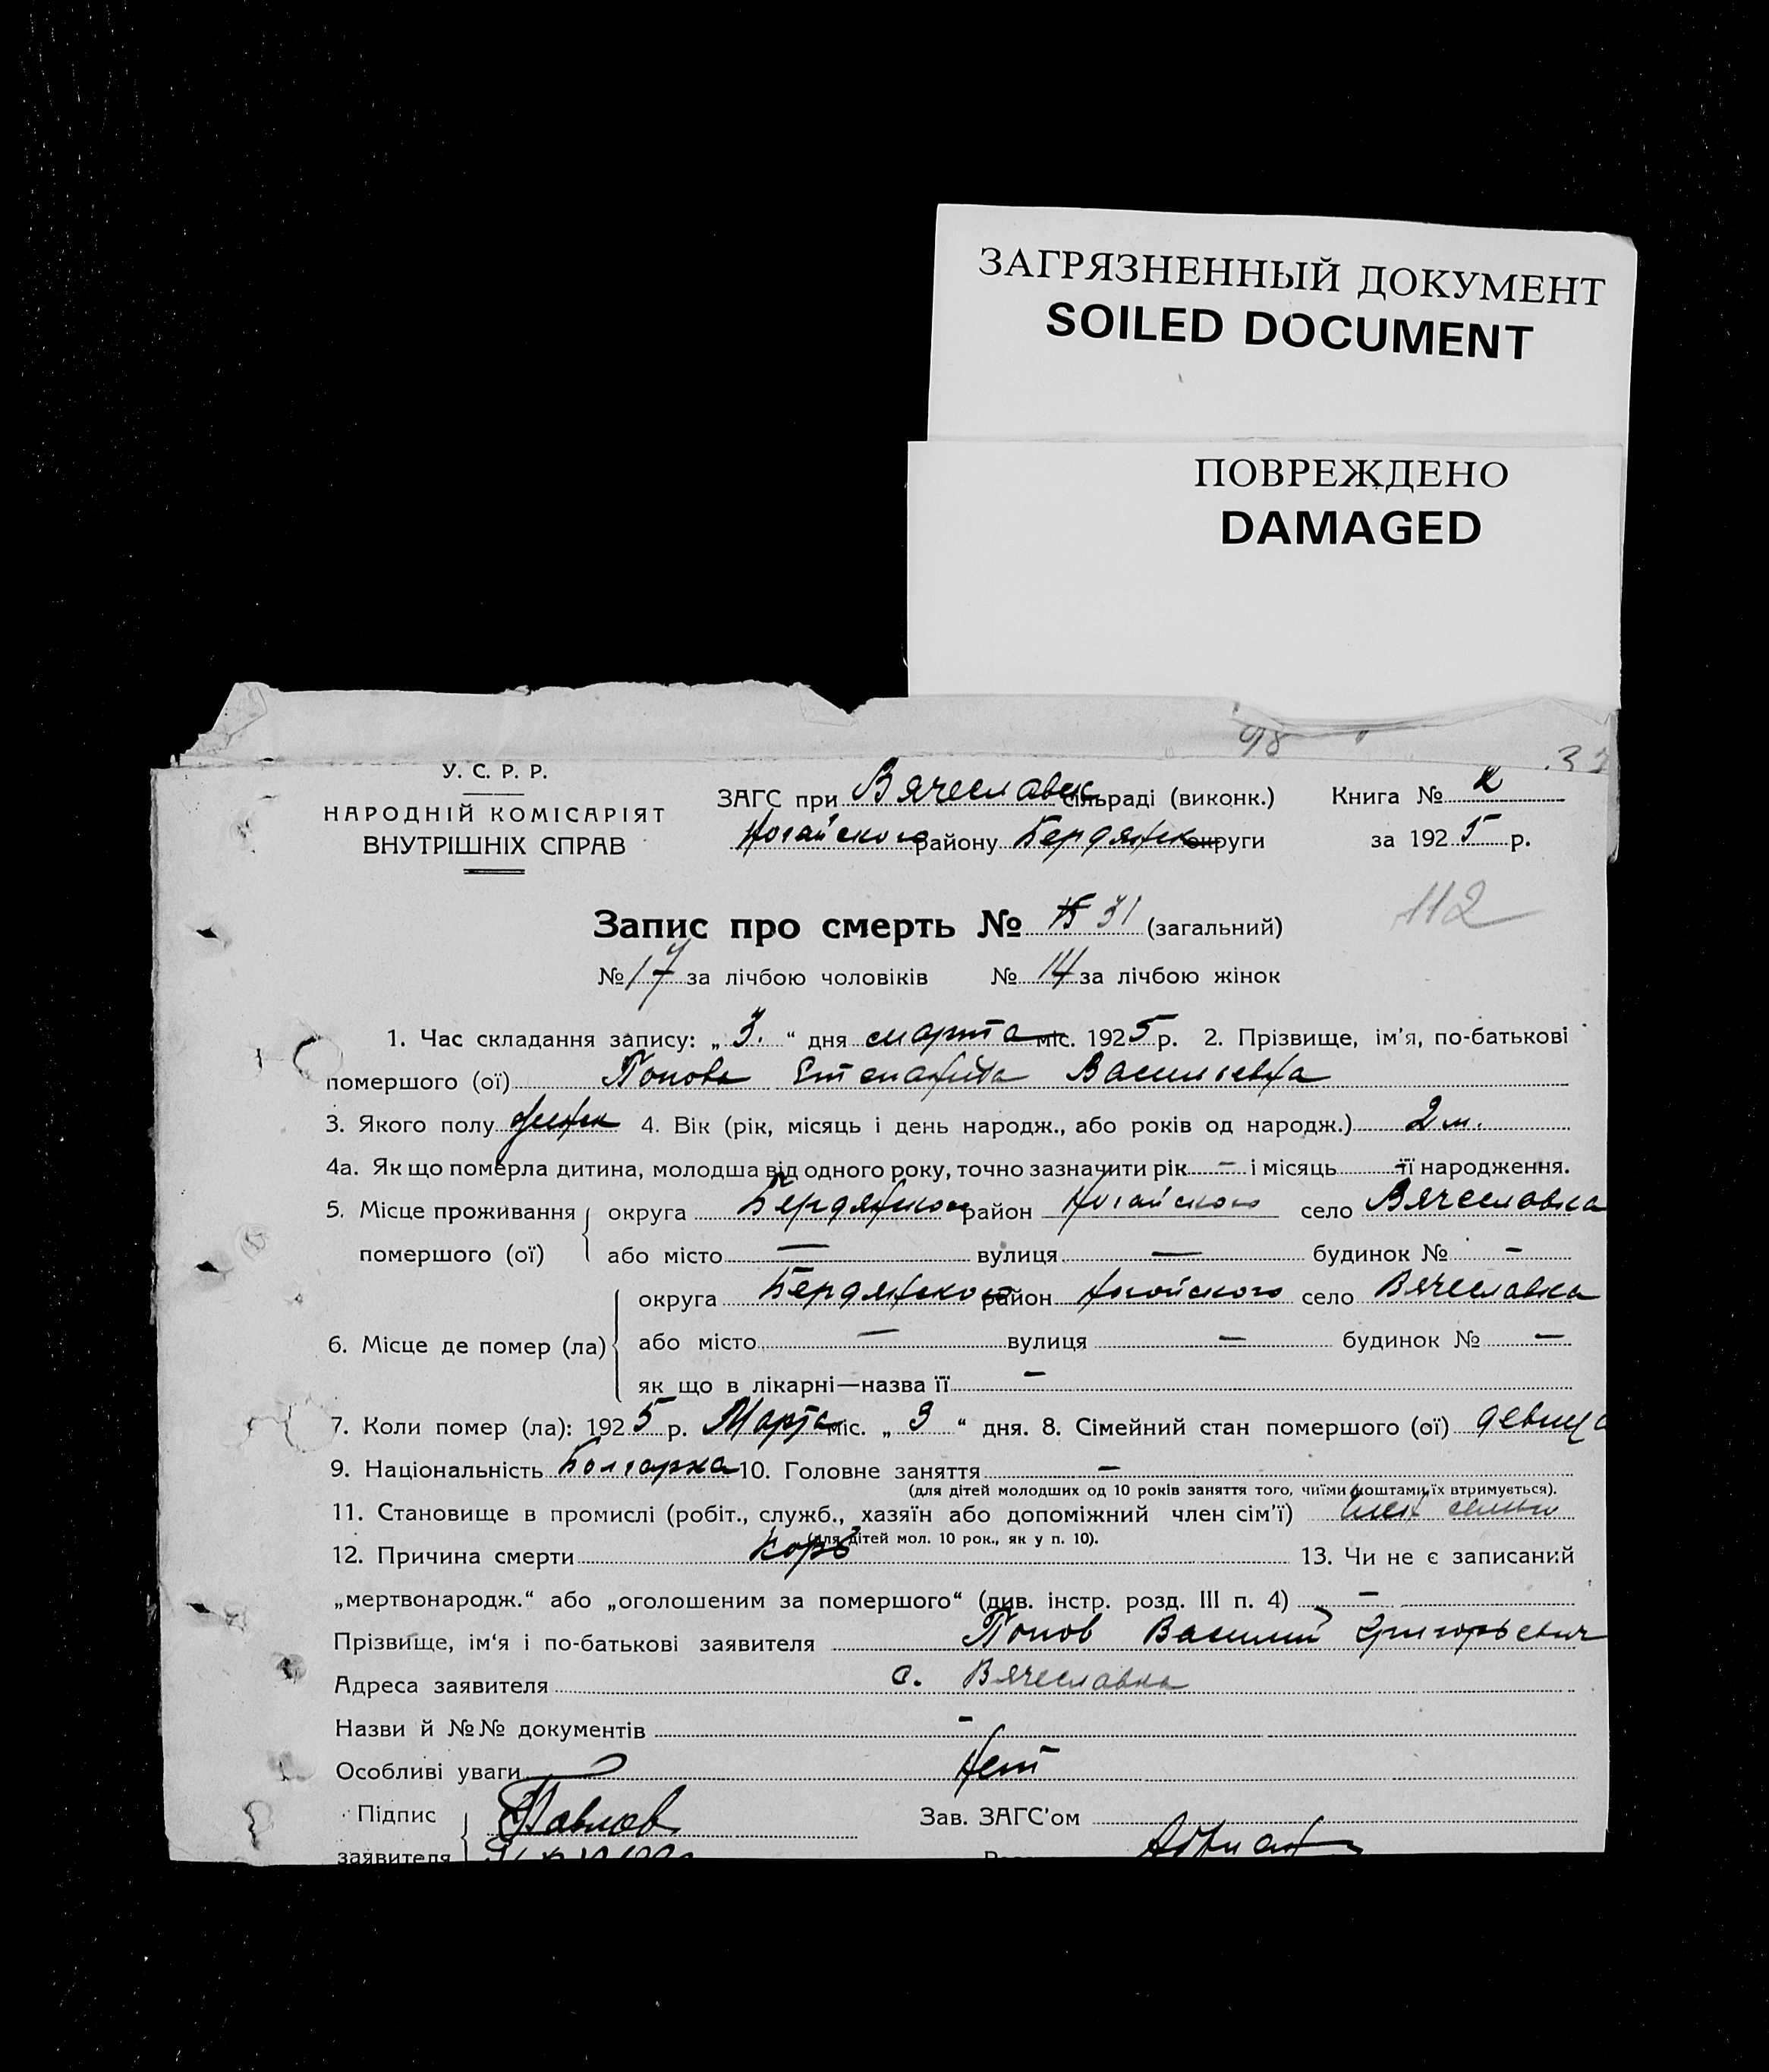 ЗАГРЯЗНЕННЫЙ ДОКУМЕНТ
SOILED DOCUMENT
ПОВРЕЖДЕНО
DAMAGED
98
У. С. Р. Р.
НАРОДНІЙ КОМІСАРІЯТ
ВНУТРІШНІХ СПРАВ
ЗАГС при Вячеславск сільраді (виконк.) Книга № 2
Ногайского району Бердянск округи за 1925 р.
112
Запис про смерть № 31 (загальний)
№ 17 за лічбою чоловіків № 14 за лічбою жінок
1. Час складання запису: „3.“ дня марта міс. 1925 р. 2. Прізвище, ім'я, по-батькові
помершого (ої) Попова Васильевна
3. Якого полу женск 4. Вік (рік, місяць і день народж., або років од народж.) 2 м.
4а. Як що померла дитина, молодша від одного року, точно зазначити рік – і місяць – її народження.
5. Місце проживання помершого (ої) округа Бердянского район Ногайского село Вячеславка
або місто — вулиця — будинок № -
6. Місце де помер (ла) округа Бердянского район Ногайского село Вячеславка
або місто — вулиця — будинок № —
як що в лікарні—назва її –
7. Коли помер (ла): 1925 р. Марта міс. „3“ дня. 8. Сімейний стан помершого (ої) девица
9. Національність Болгарка 10. Головне заняття –
(для дітей молодших од 10 років заняття того, чиїми коштами їх втримується).
11. Становище в промислі (робіт., служб., хазяїн або допоміжний член сім'ї) член семьи
(для дітей мол. 10 рок., як у п. 10).
12. Причина смерти Корь 13. Чи не є записаний
„мертвонародж.“ або „оголошеним за помершого“ (див. інстр. розд. III п. 4) –
Прізвище, ім'я і по-батькові заявителя Попов Василий Григорьевич
Адреса заявителя с. Вячеславка
Назви й №№ документів -
Особливі уваги Нет
Підпис Павлов Зав. ЗАГС'ом
заявителя